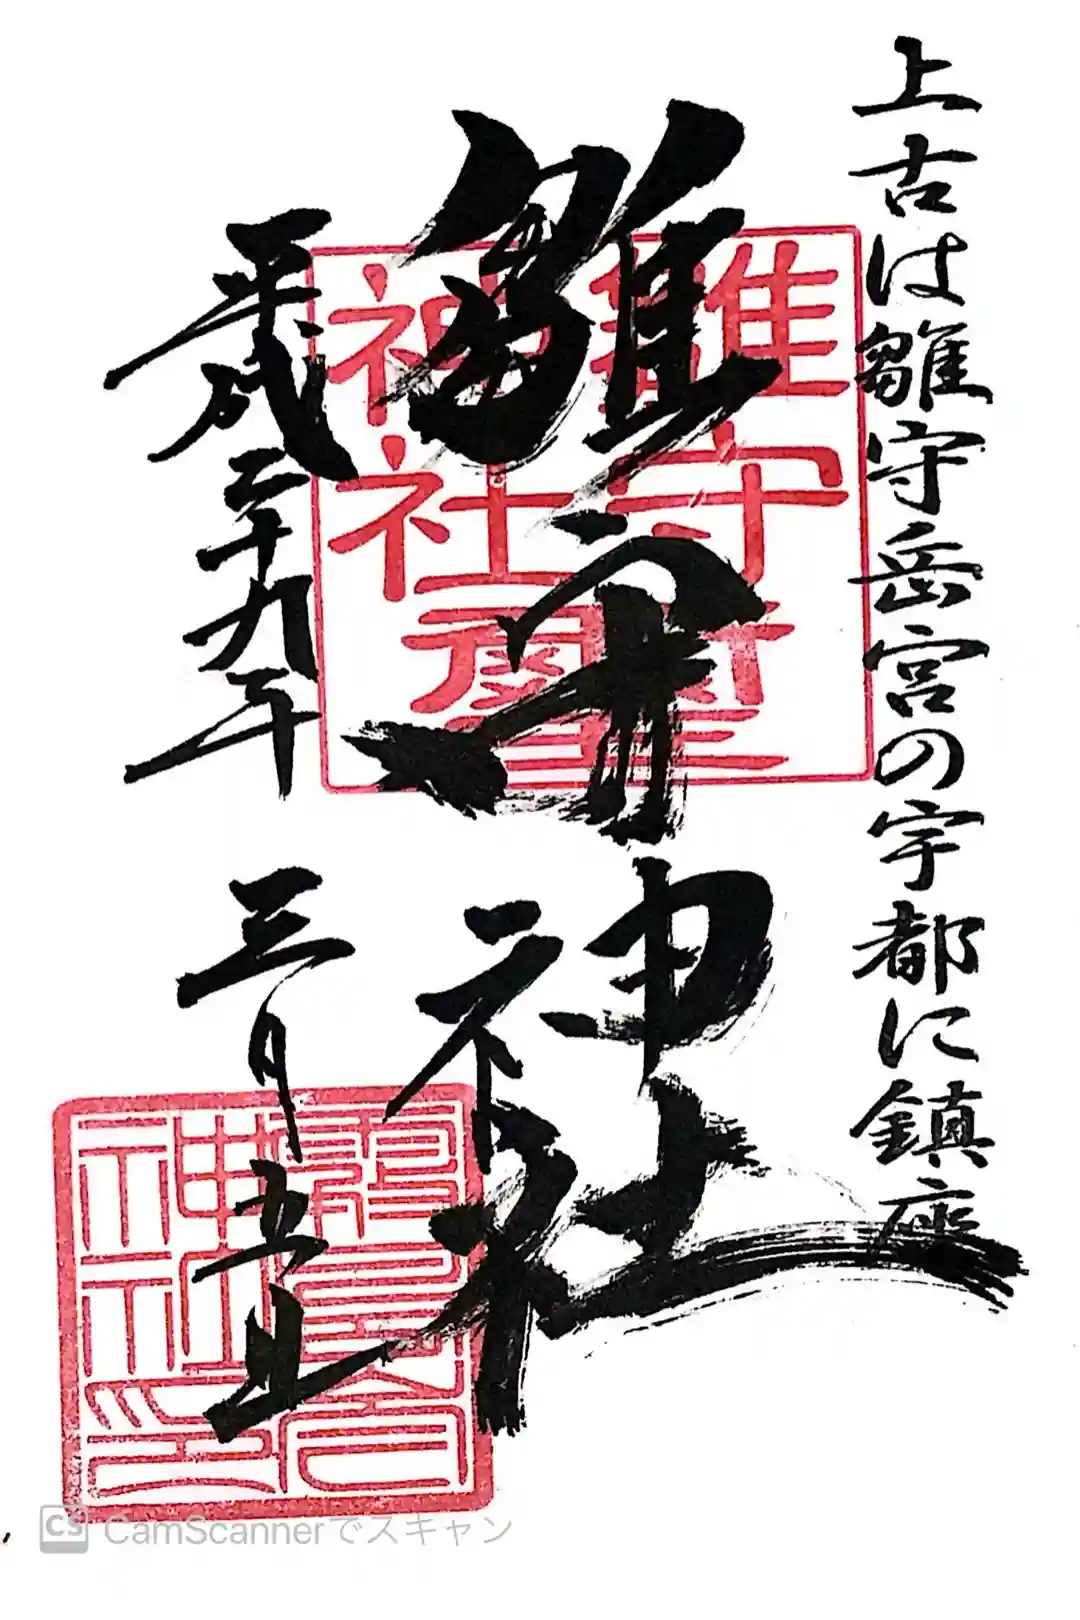 上古は雛守岳宮の宇都に鎮座
雛守神社
平成二十九年
三月五日
雛守
神社
神社
CS CamScannerでスキャン